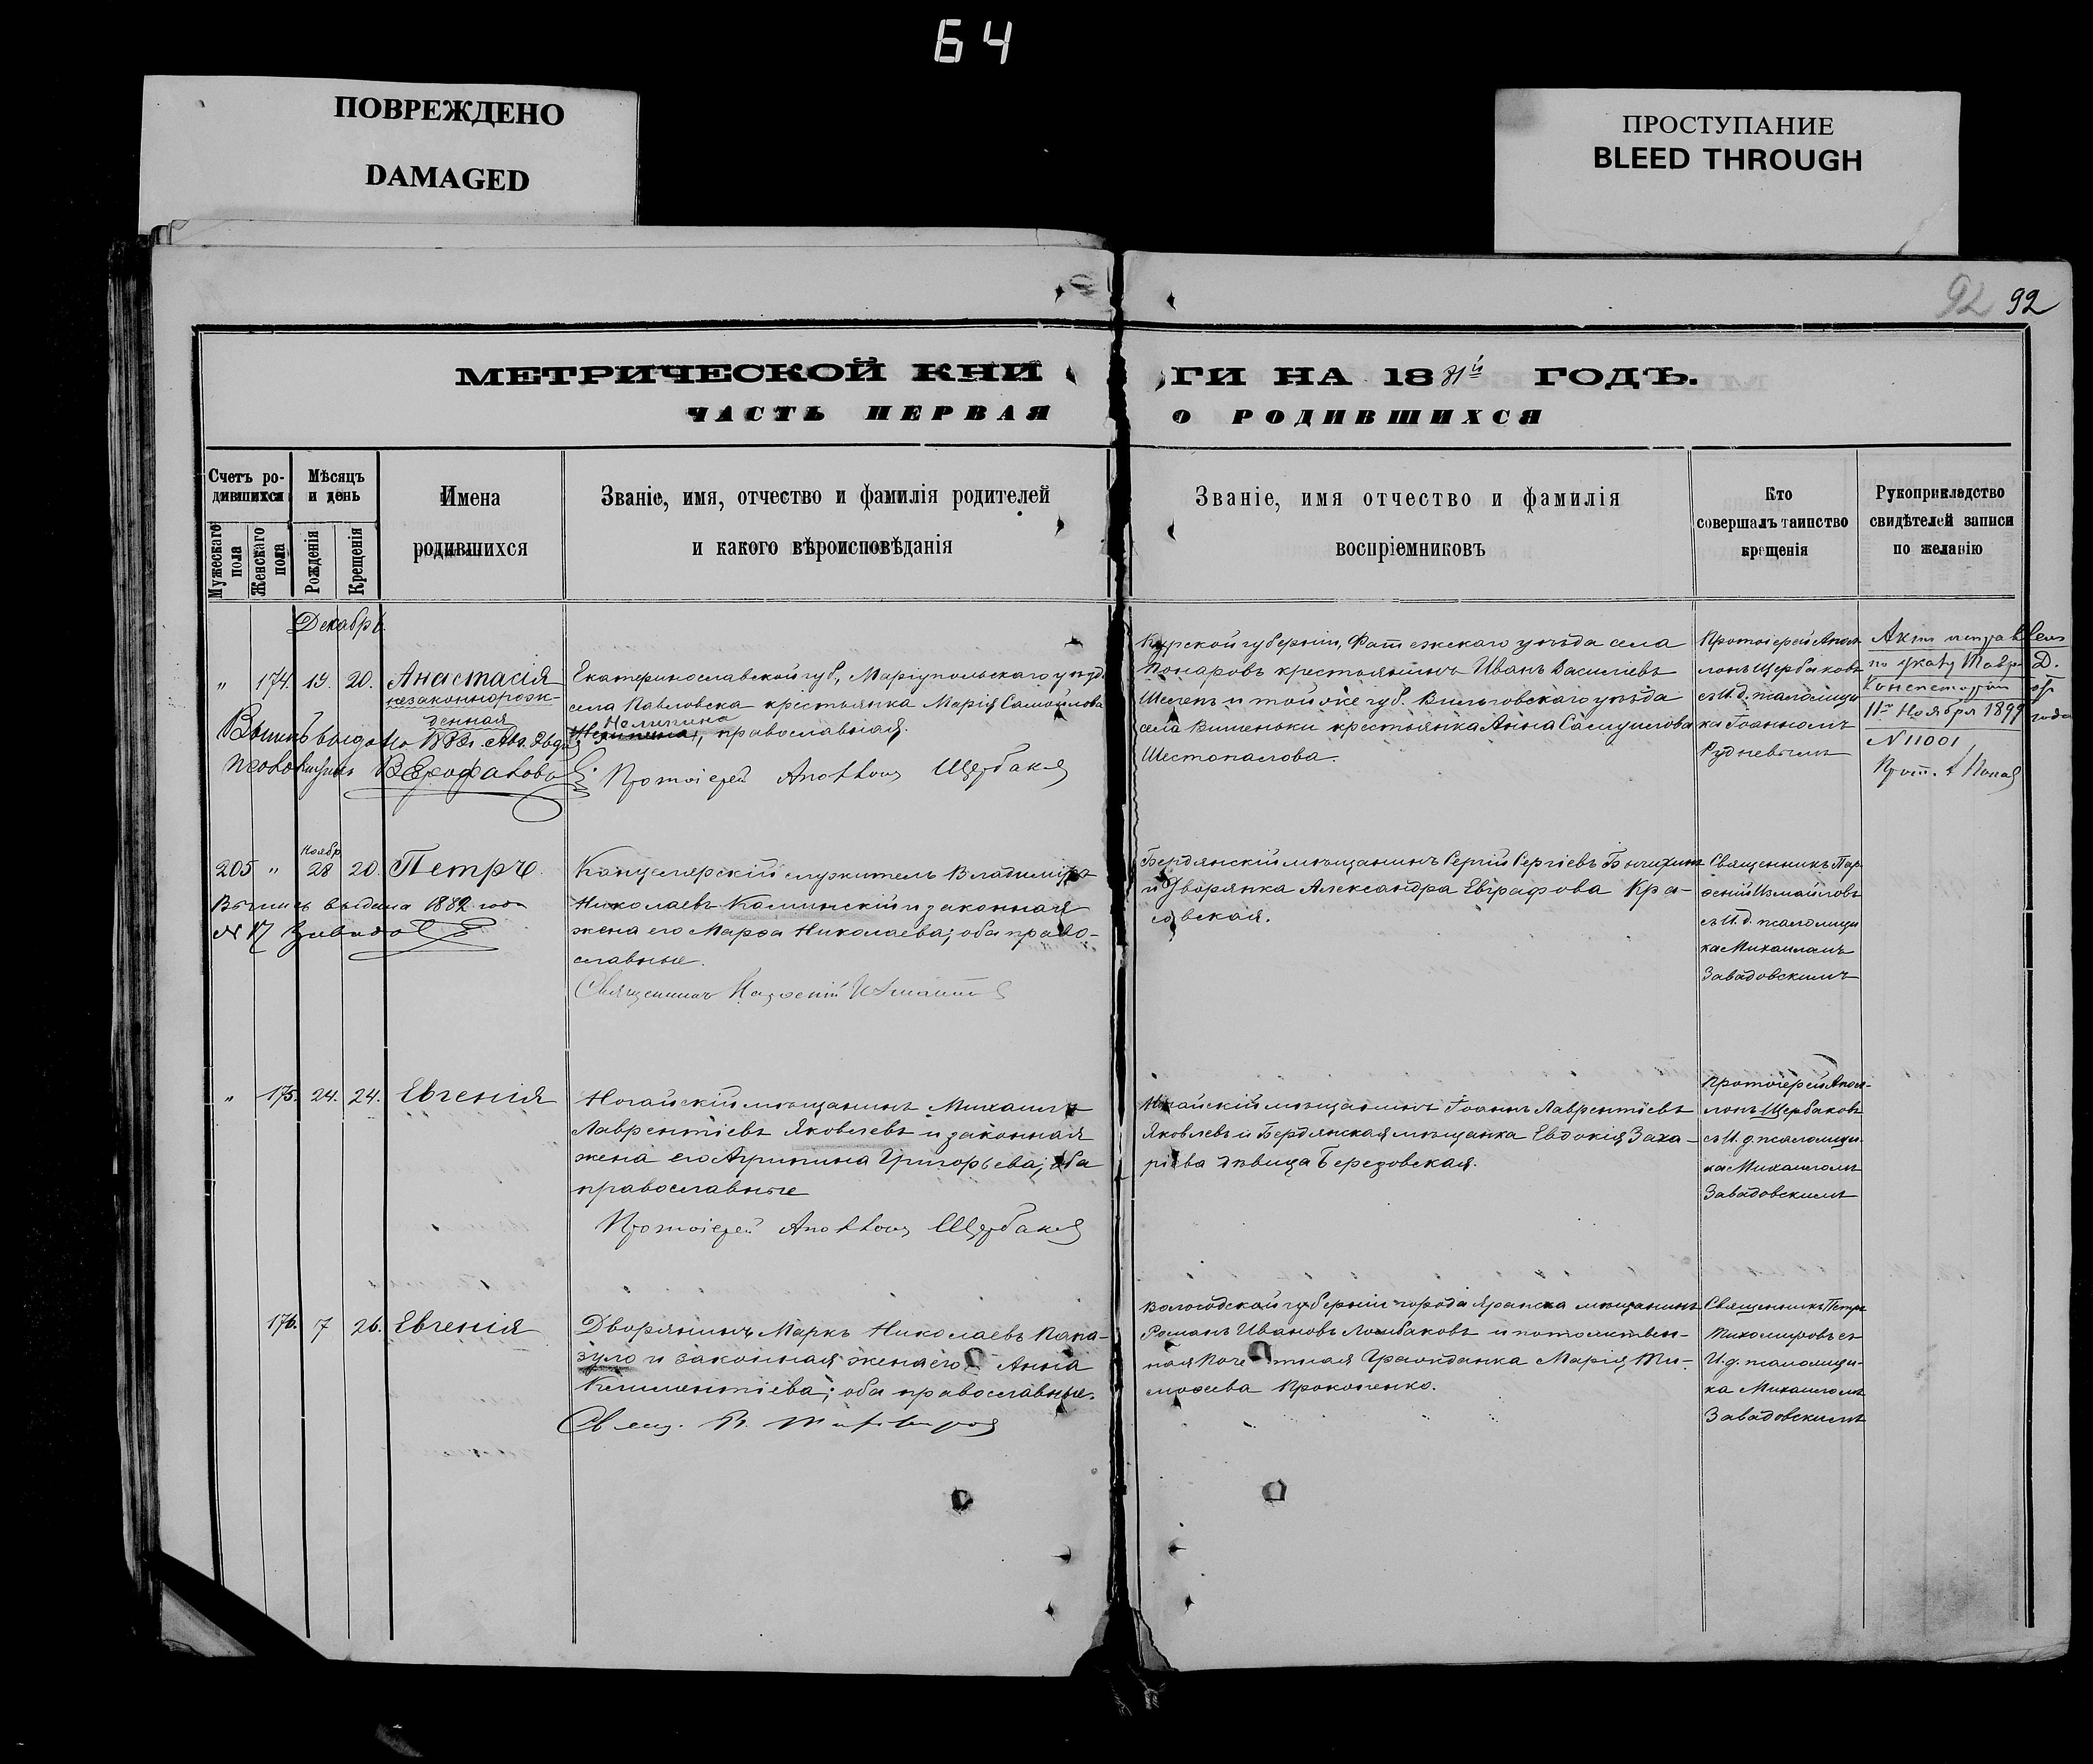 64
ПОВРЕЖДЕНО
DAMAGED
ПРОСТУПАНИЕ
BLEED THROUGH
92 92
МЕТРИЧЕСКОЙ КНИ ГИ НА 1881й ГОДЪ.
ЧАСТЬ ПЕРВАЯ О РОДИВШИХСЯ
Счетъ ро-
дившихся
Мужескаго пола
Женскаго пола
Мѣсяцъ
и день
Рожденія
Крещенія
Имена
родившихся
Званіе, имя, отчество и фамилія родителей
и какого вѣроисповѣданія
Званіе, имя отчество и фамилія
воспріемниковъ
Кто
совершалъ таинство
крещенія
Рукоприкладство
свидѣтелей записи
по желанію
Декабрь
" 174. 19. 20. Анастасія
незаконнорож-
денная
Екатеринославской губ., Маріупольскаго уѣзд.
села Павловска крестьянка Марія Самойлова
православная.
Протоіерей Аполлонъ Щербаковъ
Курской губерніи, Фатежскаго уѣзда села
Понаровъ крестьянинъ Иванъ Василіевъ
и той же губ. уѣзда
села Вишеньки крестьянка Анна Самуилова
Шестопалова.
Протоіерей Апол-
лонъ Щербаковъ
съ И. д. псаломщи
ка Іоанномъ
Рудневымъ
Актъ исправленъ
по указу Тавр. Д.
Консисторіи отъ
11го Ноября 1899 года
N 11001
205 " Ноябр. 28 20. Петръ.
Выпись выдана 1882 года
N 17
Канцелярскій служитель Владиміръ
Николаевъ Каминскій и законная
жена его Марѳа Николаева; оба право-
славные.
Священникъ Парѳеній Измайловъ
Бердянскій мѣщанинъ Сергій Сергіевъ
и Дворянка Александра Евграфова Кра-
совская.
Священникъ Пар-
ѳеній Измайловъ
съ И. д. псаломщи
ка Михаиломъ
Завадовскимъ
" 175. 24. 24. Евгенія
Ногайскій мѣщанинъ Михаилъ
Лаврентіевъ Яковлевъ и законная
жена его Агрипина Григорьева; оба
православные
Протоіерей Аполлонъ Щербаковъ
Ногайскій мѣщанинъ Іоаннъ Лаврентіевъ
Яковлевъ и Бердянская мѣщанка Евдокія Заха-
ріева дѣвица Березовская.
Протоіерей Апол-
лонъ Щербаковъ
съ И. д. псаломщи-
ка Михаиломъ
Завадовскимъ
176. 7 26. Евгенія
Дворянинъ Маркъ Николаевъ Папа-
зуло и законная жена его Анна
Климентіева; оба православные.
Свящ. П. Тихомировъ
Вологодской губерніи города Яранска мѣщанинъ
Романъ Ивановъ Ломбаковъ и потомствен-
ная Почетная Гражданка Марія Ти-
моѳеева Прокопенко.
Священникъ Петръ
Тихомировъ съ
И. д. псаломщи-
ка Михаиломъ
Завадовскимъ